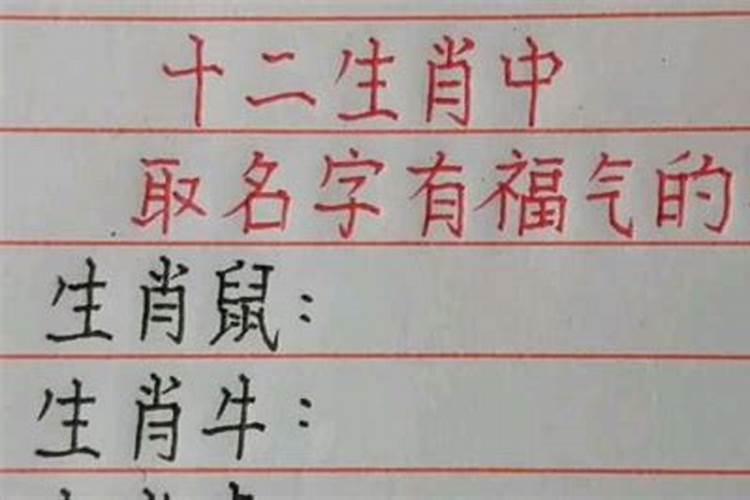 十二生肖中
取名字有福气的
生肖鼠：
生肖牛：